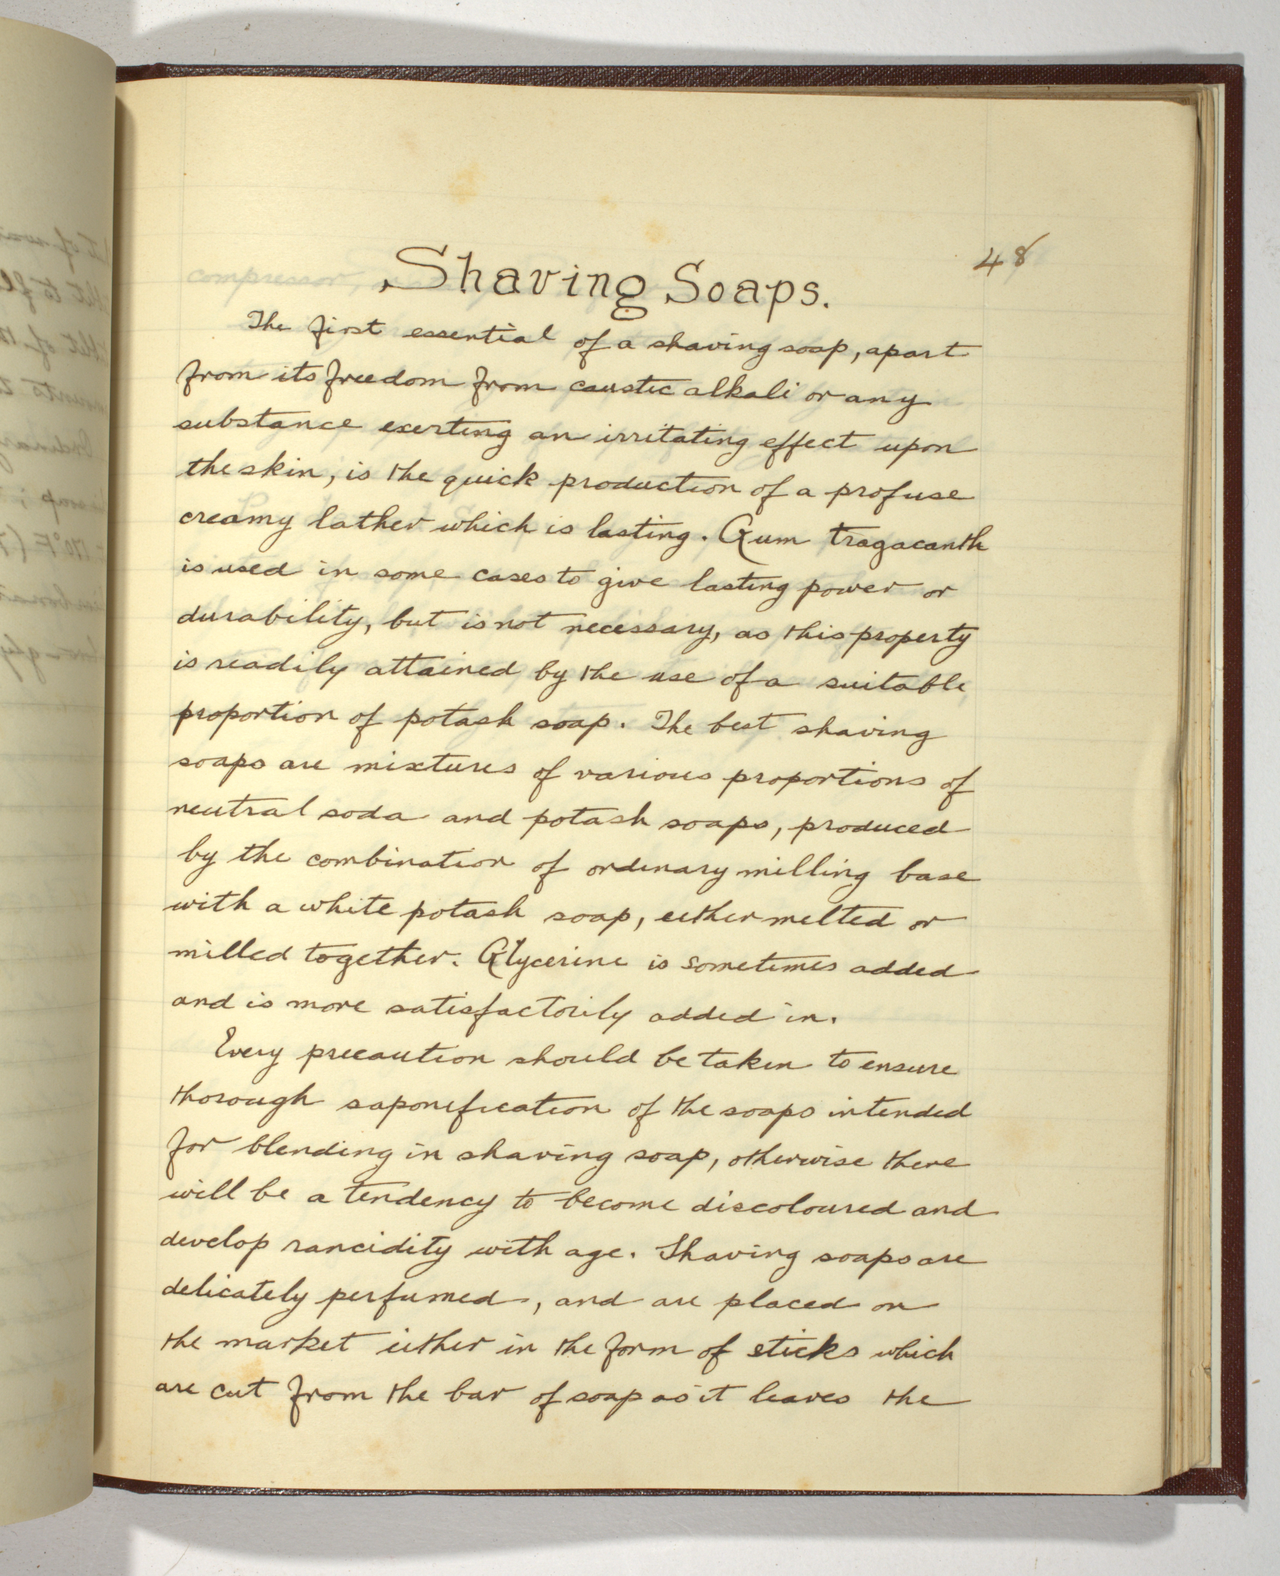 48
Shaving Soaps.
The first essential of a shaving soap, apart
from its freedom from caustic alkali or any
substance exerting an irritating effect upon
the skin, is the quick production of a profuse
creamy lather which is lasting. Gum tragacanth
is used in some cases to give lasting power or
durability, but is not necessary, as this property
is readily attained by the use of a suitable
proportion of potash soap. The best shaving
soaps are mixtures of various proportions of
neutral soda and potash soaps, produced
by the combination of ordinary milling base
with a white potash soap, either melted or
milled together. Glycerine is sometimes added
and is more satisfactorily added in.
Every precaution should be taken to ensure
thorough saponification of the soaps intended
for blending in shaving soap, otherwise there
will be a tendency to become discoloured and
develop rancidity with age. Shaving soaps are
delicately perfumed, and are placed on
the market either in the form of sticks which
are cut from the bar of soap as it leaves the
compressor,